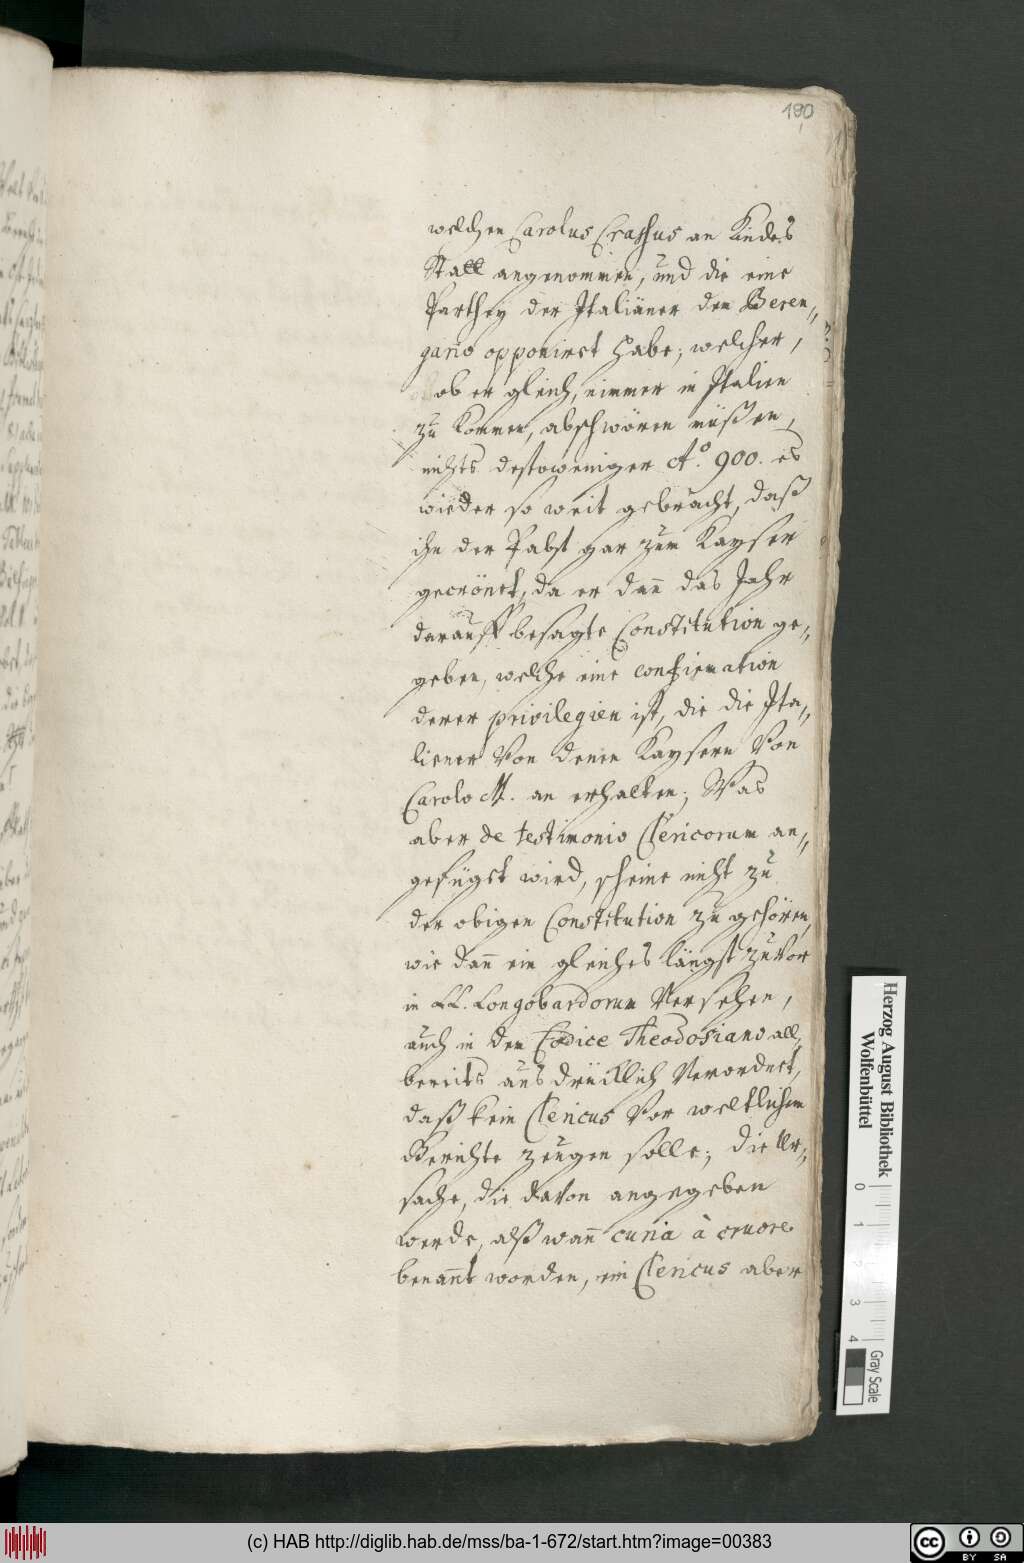 190
welchen Carolus Crassus an Kindes
Statt angenommen, und die eine
Parthey der Italiäner dem Beren„
gario opponiret habe; welcher,
ob er gleich, nimmer in Italien
zu kommen, abschwören müßen,
nichts destoweniger Aº. 900. es
wieder so weit gebracht, daß
ihn der Pabst gar zum Kayser
gecrönet, da er dañ das Jahr
darauff besagte Constitution ge„
geben, welche eine confirmation
derer privilegien ist, die die Ita„
liener von denen Kaysern von
Carolo M. an erhalten; Was
aber de testimonio Clericorum an„
gefüget wird, scheine nicht zu
der obigen Constitution zu gehören,
wie dañ ein gleiches längst zuvor
in LL. Longobardorum versehen,
auch in dem Codice Theodosiano all„
bereits ausdrücklich verordnet,
daß kein Clericus vor weltlichem
Gerichte zeugen solle; die Ur„
sache, die davon angegeben
werde, alß wañ curia à cruore
benañt worden, ein Clericus aber
Herzog August Bibliothek
Wolfenbüttel
0 1 2 3 4
Gray Scale
(c) HAB http://diglib.hab.de/mss/ba-1-672/start.htm?image=00383
cc BY SA